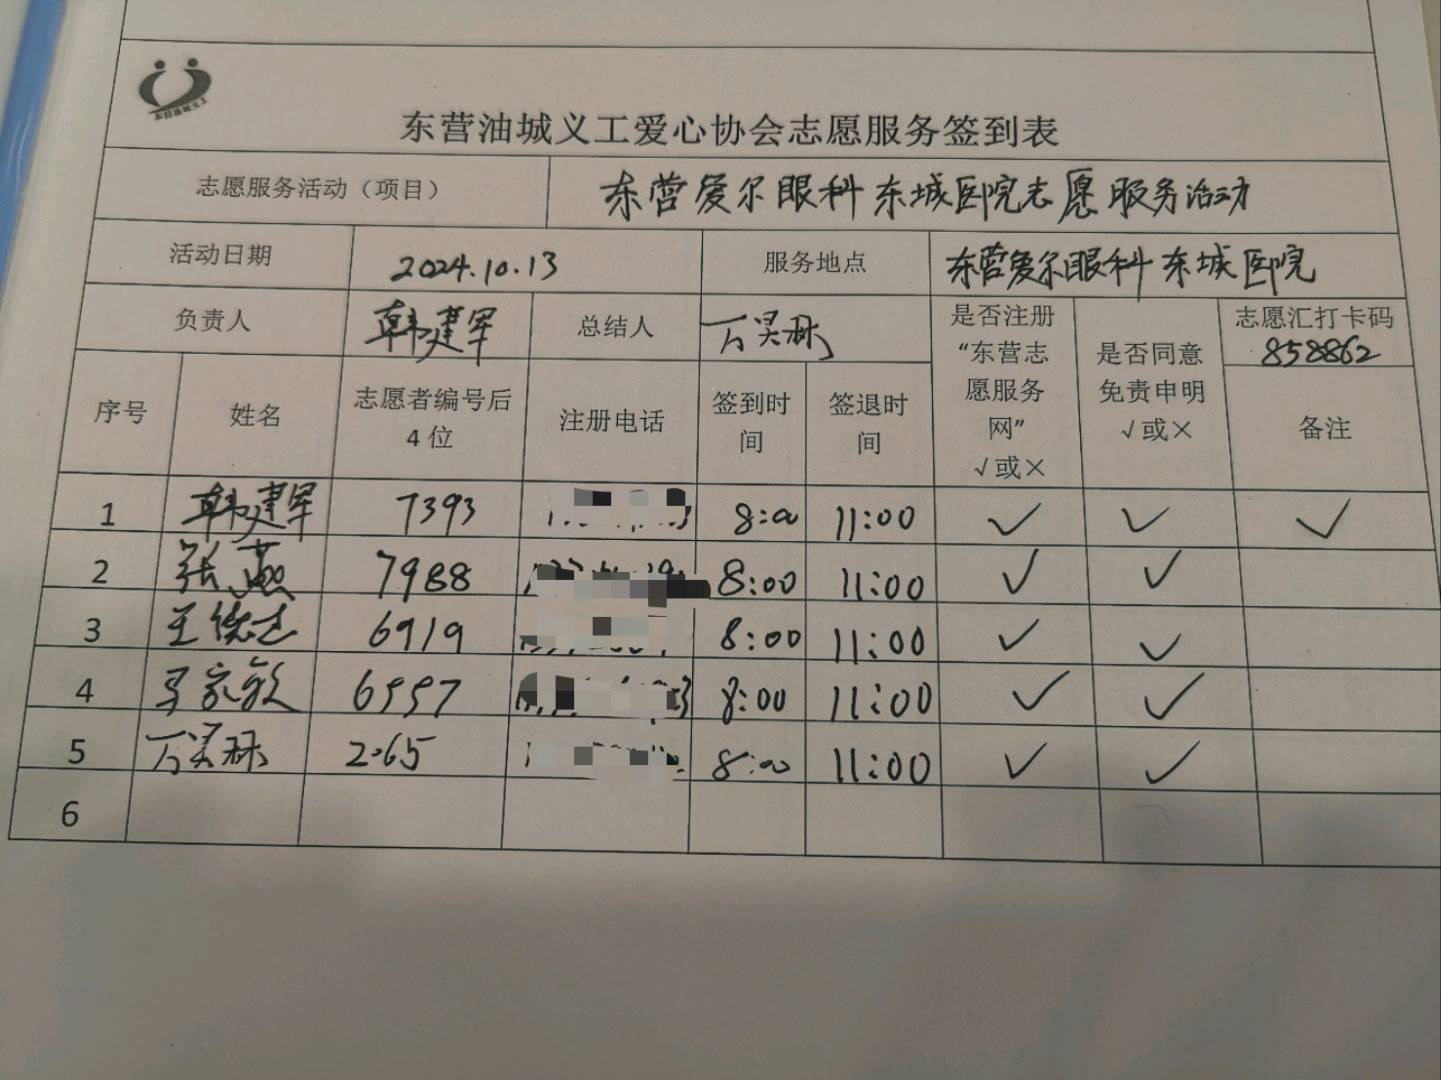 东营油城义工
东营油城义工爱心协会志愿服务签到表
志愿服务活动（项目） 东营爱尔眼科东城医院志愿服务活动
活动日期 2024.10.13 服务地点 东营爱尔眼科东城医院
负责人 韩建军 总结人 是否注册“东营志愿服务网”√或× 是否同意免责申明√或× 志愿汇打卡码 858862
序号 姓名 志愿者编号后4位 注册电话 签到时间 签退时间 备注
1 韩建军 7393 8:00 11:00 ✓ ✓ ✓
2 张燕 7988 8:00 11:00 ✓ ✓
3 王德志 6919 8:00 11:00 ✓ ✓
4 8:00 11:00 ✓ ✓
5 8:00 11:00 ✓ ✓
6